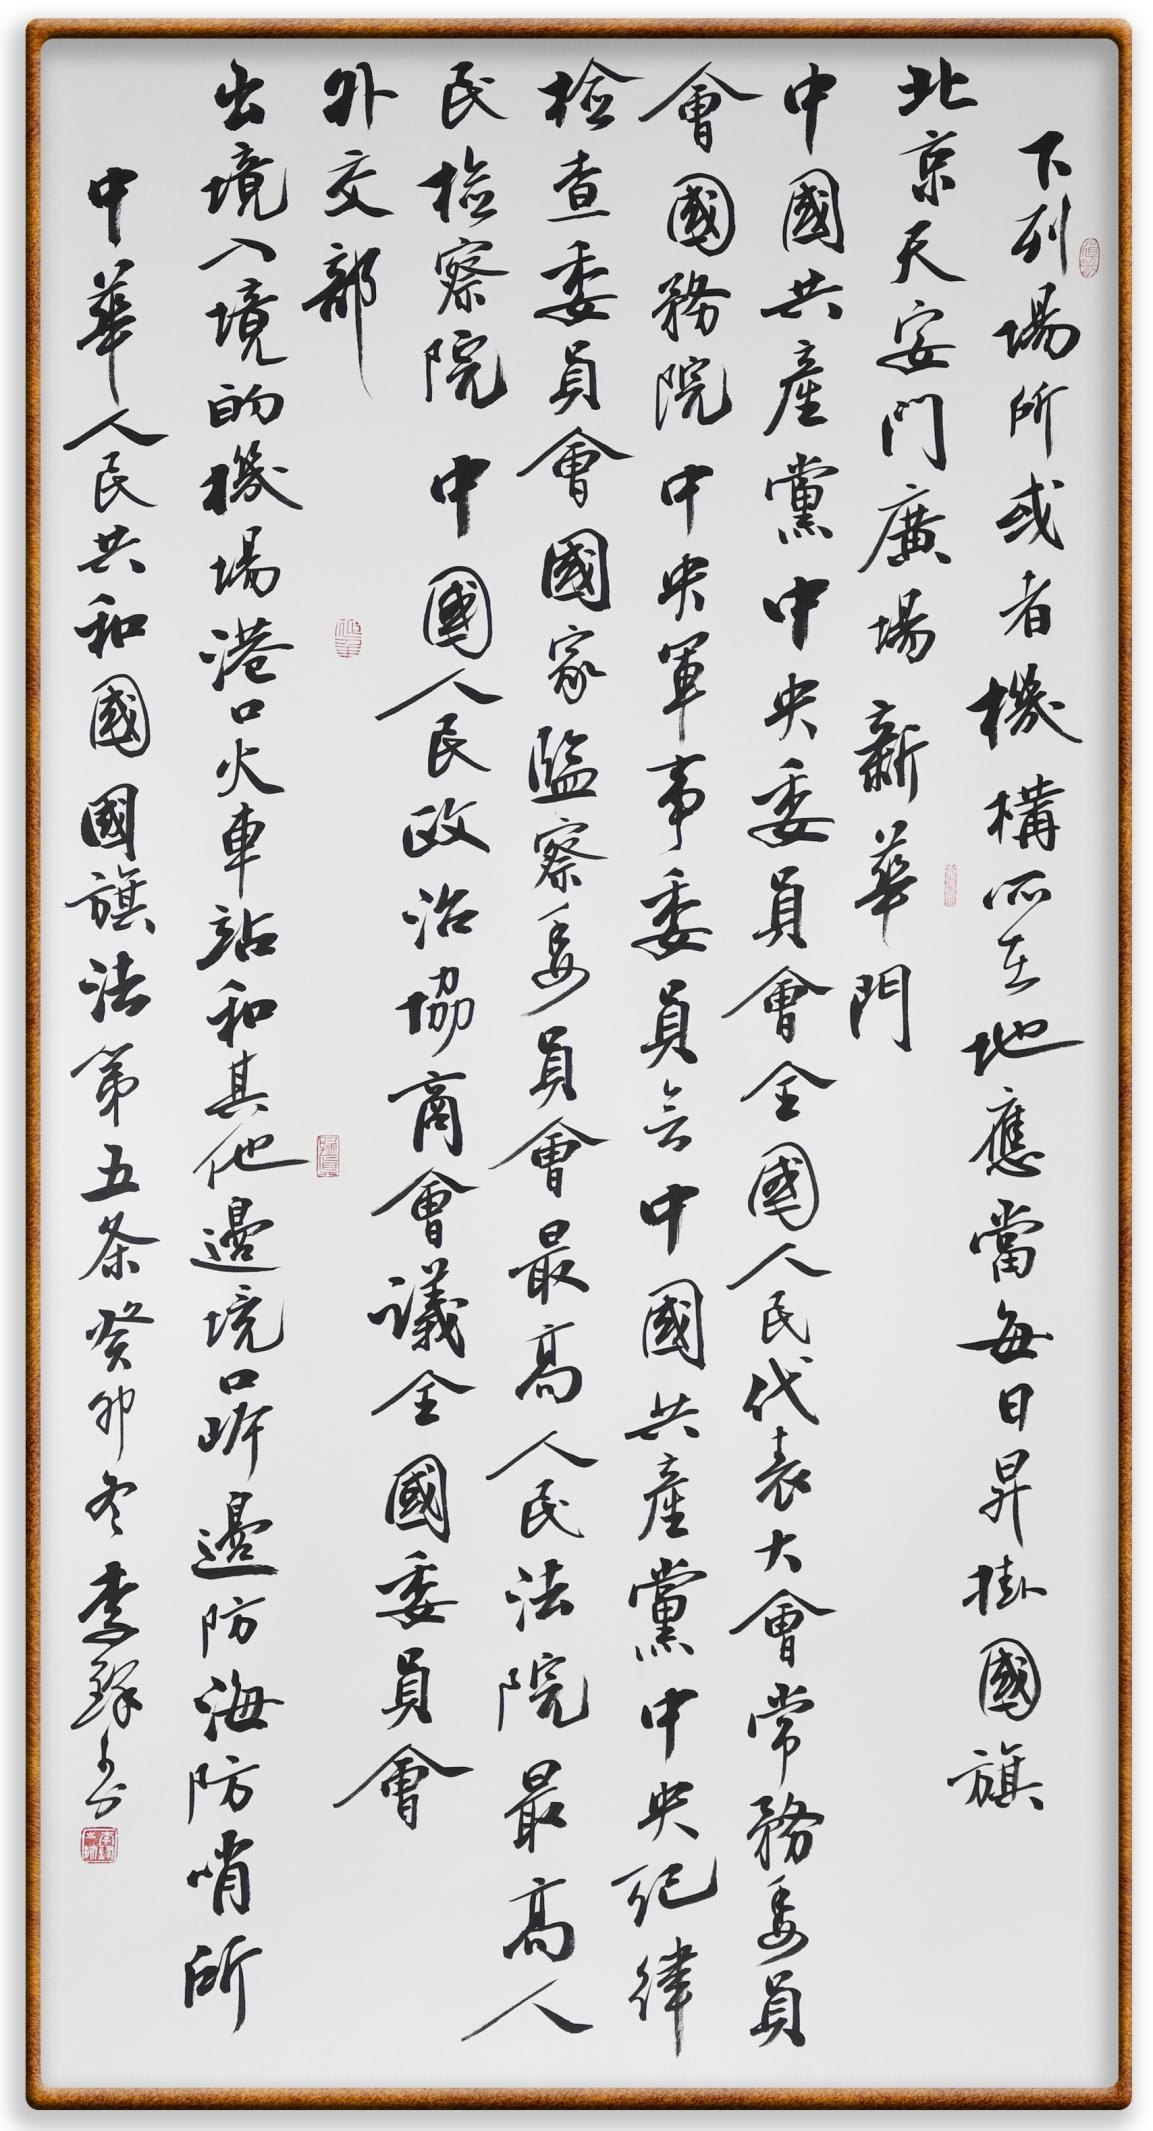 下列場所或者機構所在地應當每日昇掛國旗
北京天安門廣場 新華門
中國共產黨中央委員會全國人民代表大會常務委員
會國務院 中央軍事委員会中國共產黨中央纪律
檢查委員會國家監察委員會最高人民法院最高人
民檢察院 中國人民政治協商會議全國委員會
外交部
出境入境的機場港口火車站和其他邊境口岸邊防海防哨所
中華人民共和國國旗法第五条癸卯冬李鐸書